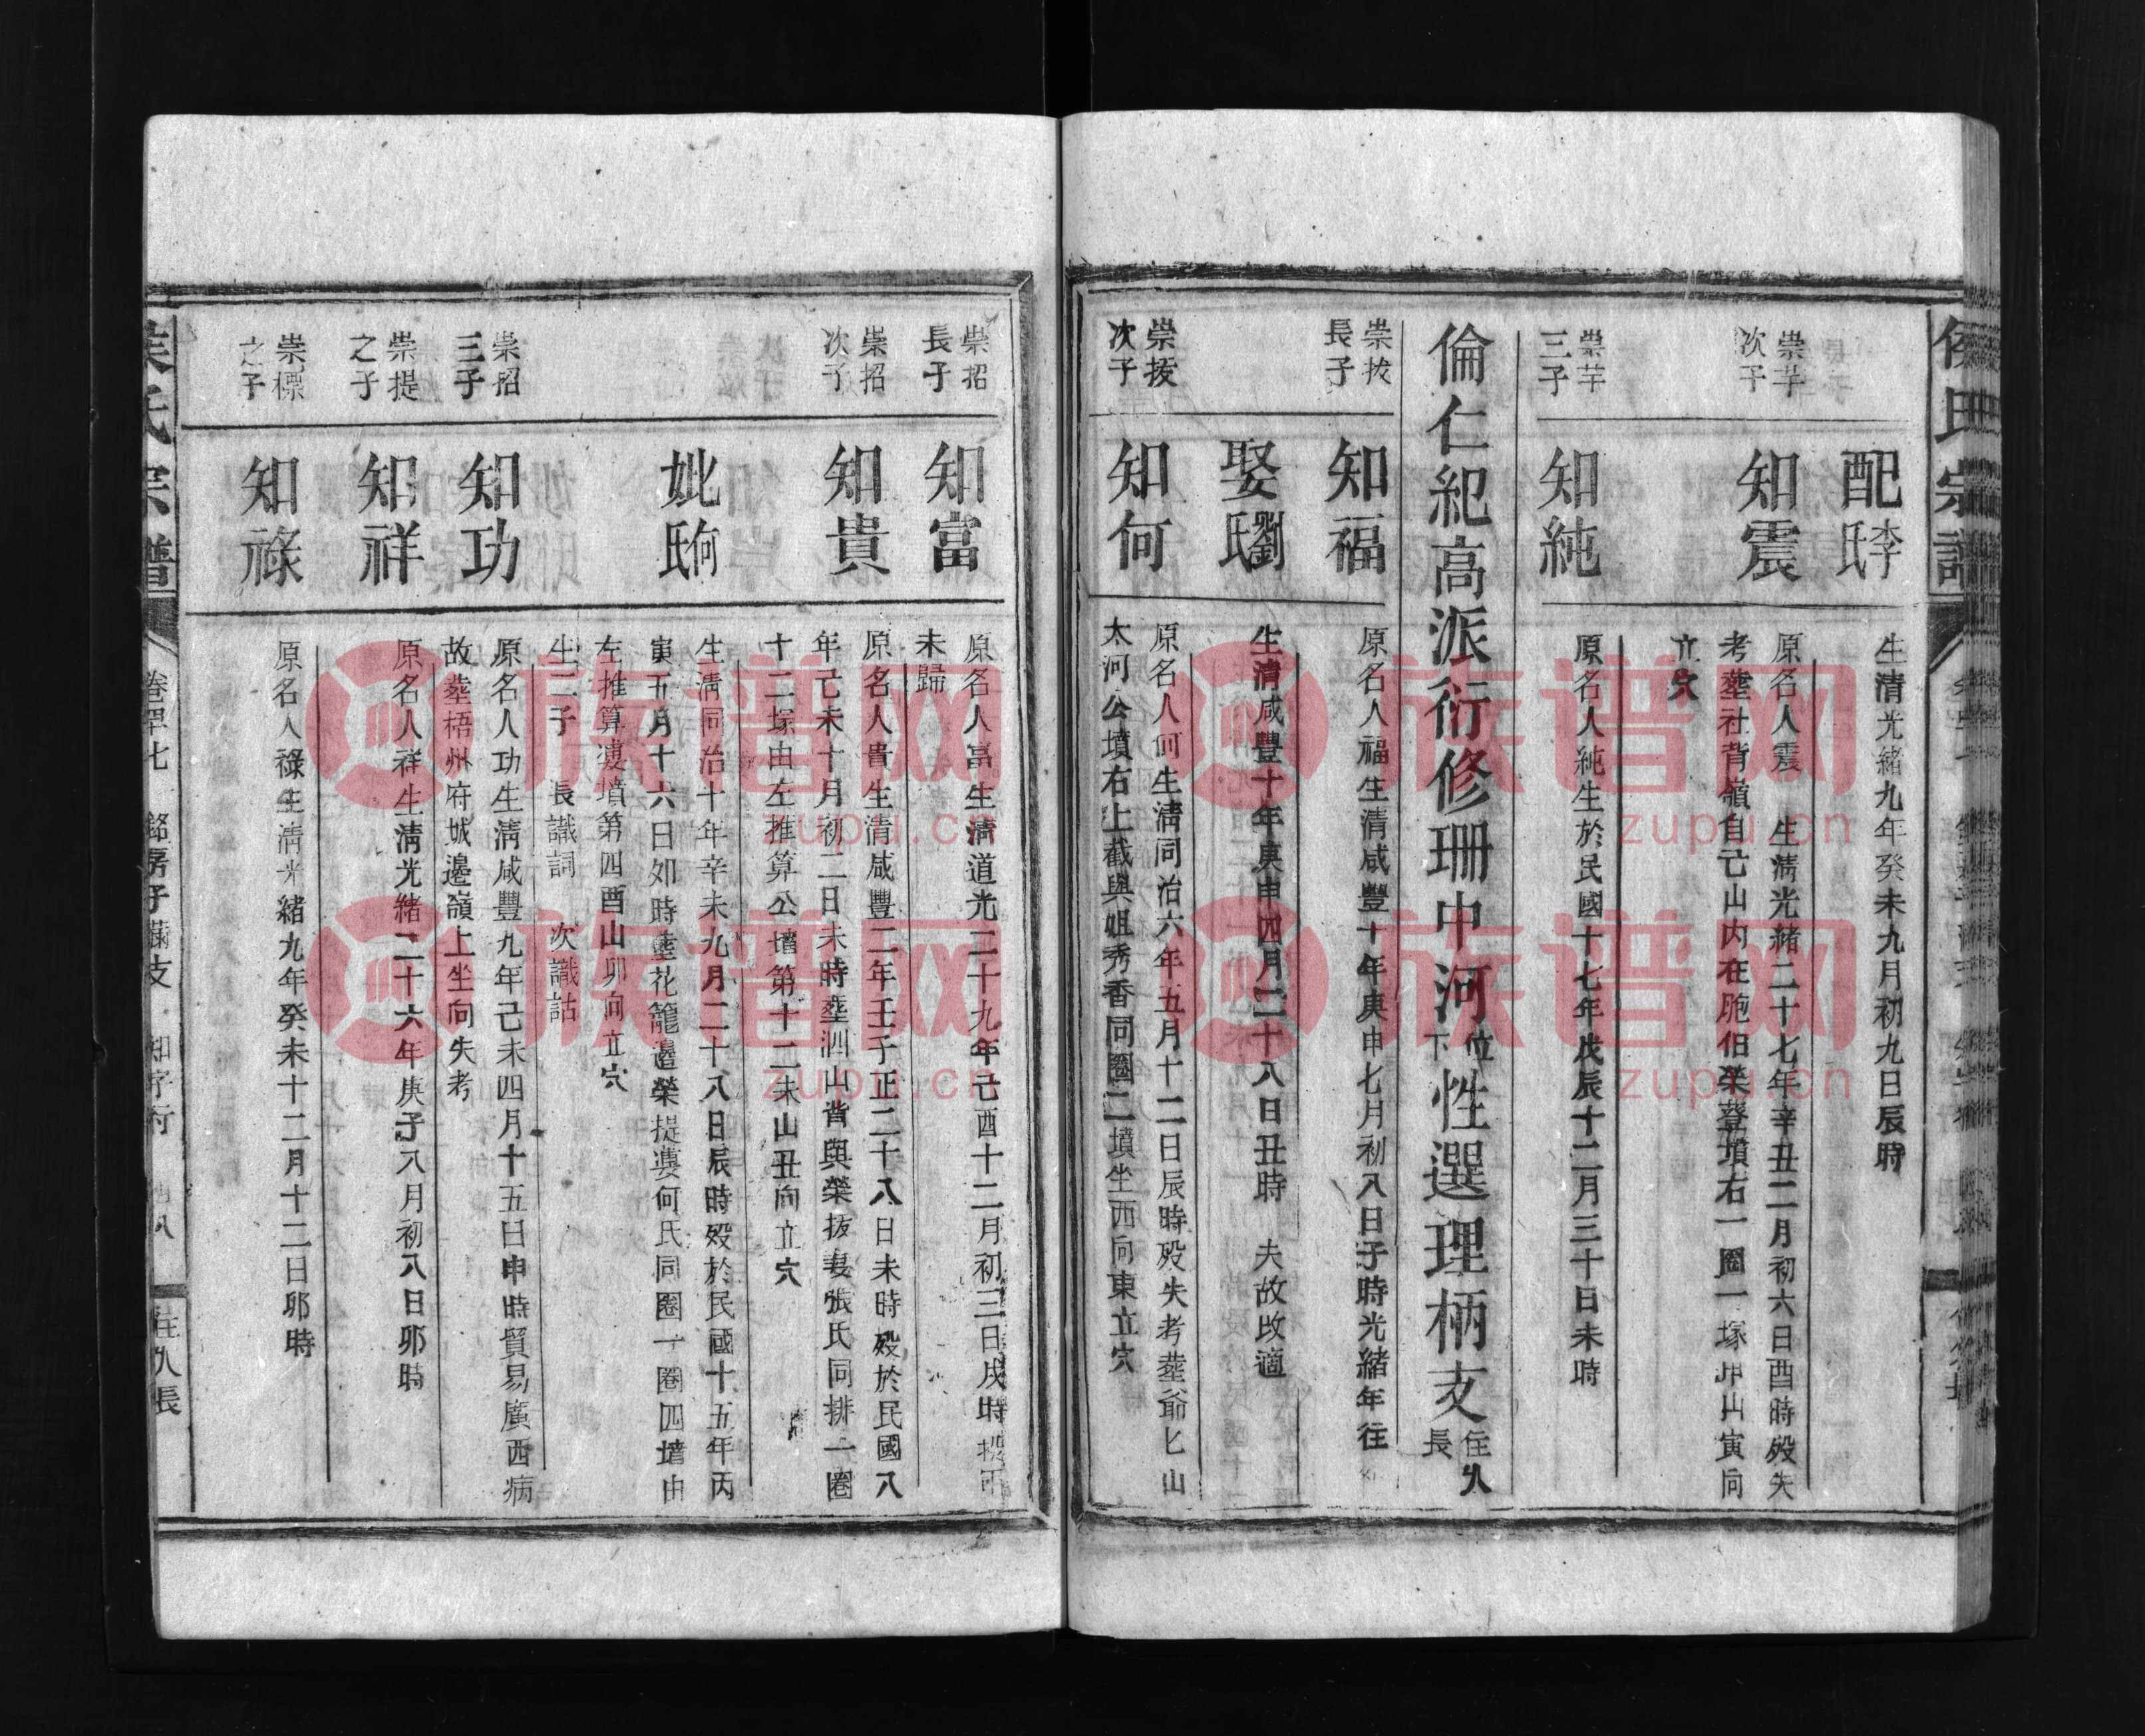 侯氏宗譜
配李氏
生清光緒九年癸未九月初九日辰時
崇芊次子
知震
原名人震 生清光緒二十七年辛丑二月初六日酉時歿失
考塟社背嶺自己山内在胞伯榮登墳右一圈一塚
山寅向
立穴
崇芊三子
知純
原名人純生於民國十七年戊辰十二月三十日未時
倫仁紀高派衍修珊中河位下性選理柄支住久長
崇拔長子
知福
原名人福生清咸豐十年庚申七月初八日子時光緒年往
娶劉氏
生清咸豐十年庚申四月二十八日丑時 夫故改適
崇拔次子
知何
原名人何生清同治六年五月十二日辰時歿失考塟爺匕山
太河公墳右上截與姐秀香同圈二墳坐西向東立穴
崇招長子
知富
原名人富生清道光二十九年己酉十二月初三日戌時
未歸
崇招次子
知貴
原名人貴生清咸豐二年壬子正二十八日未時歿於民國八
年己未十月初二日未時塟泗山背與榮拔妻張氏同排一圈
十二塚由左推算公墳第十二未山丑向立穴
妣何氏
生清同治十年辛未九月二十八日辰時歿於民國十五年丙
寅五月十六日卯時塟花籠邊榮提妻何氏同圈一圈四墳由
左推算妻墳第四酉山卯向立穴
生二子 長識詞 次識詁
崇招三子
知功
原名人功生清咸豐九年己未四月十五日申時貿易廣西病
故塟梧州府城邊嶺上坐向失考
崇提之子
知祥
原名人祥生清光緒二十六年庚子八月初八日卯時
崇標之子
知祿
原名人祿生清光緒九年癸未十二月十二日卯時
侯氏宗譜
卷四七 銘房子
支 知字行
八 住久長
族谱网
zupu.cn
族谱网
zupu.cn
族谱网
zupu.cn
族谱网
zupu.cn